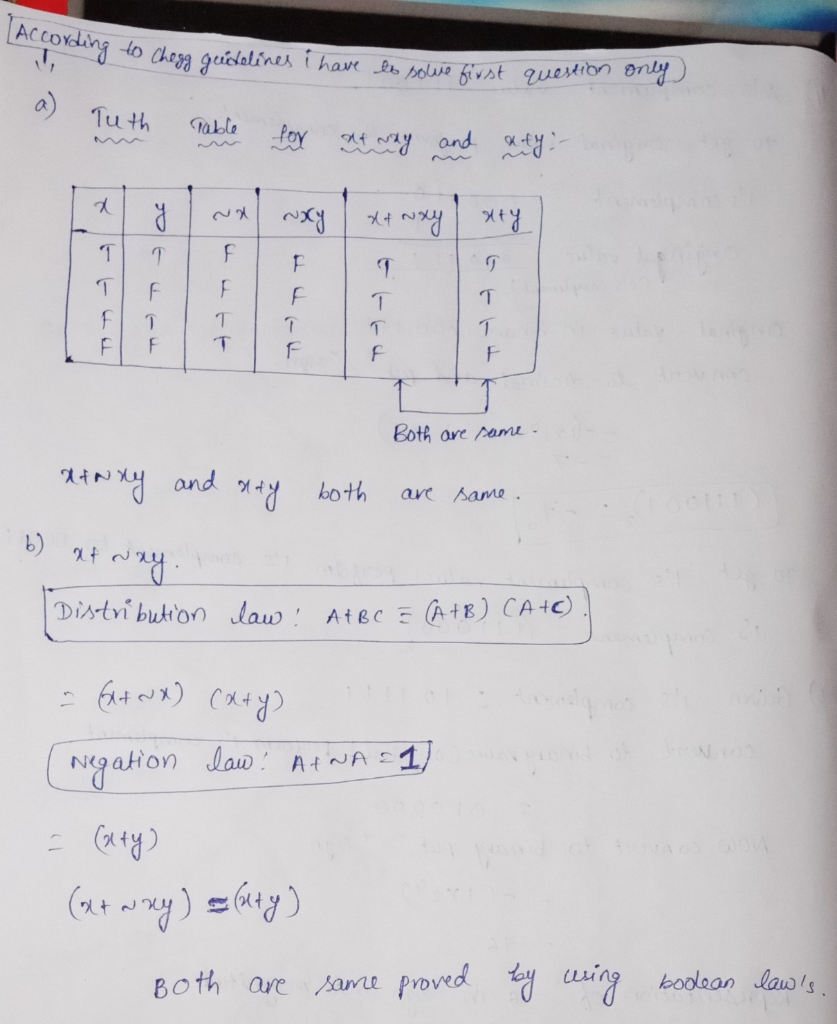 [According to Chegg guidelines i have to solve first question only)
1,
a) Tuth Table for x+~xy and x+y:-
x y ~x ~xy x+~xy x+y
T T F F T T
T F F F T T
F T T T T T
F F T F F F
Both are same.
x+~xy and x+y both are same.
b) x+~xy.
Distribution law: A+BC = (A+B) (A+C).
= (x+~x) (x+y)
Negation law: A+~A=1
= (x+y)
(x+~xy) = (x+y)
Both are same proved by using boolean law's.